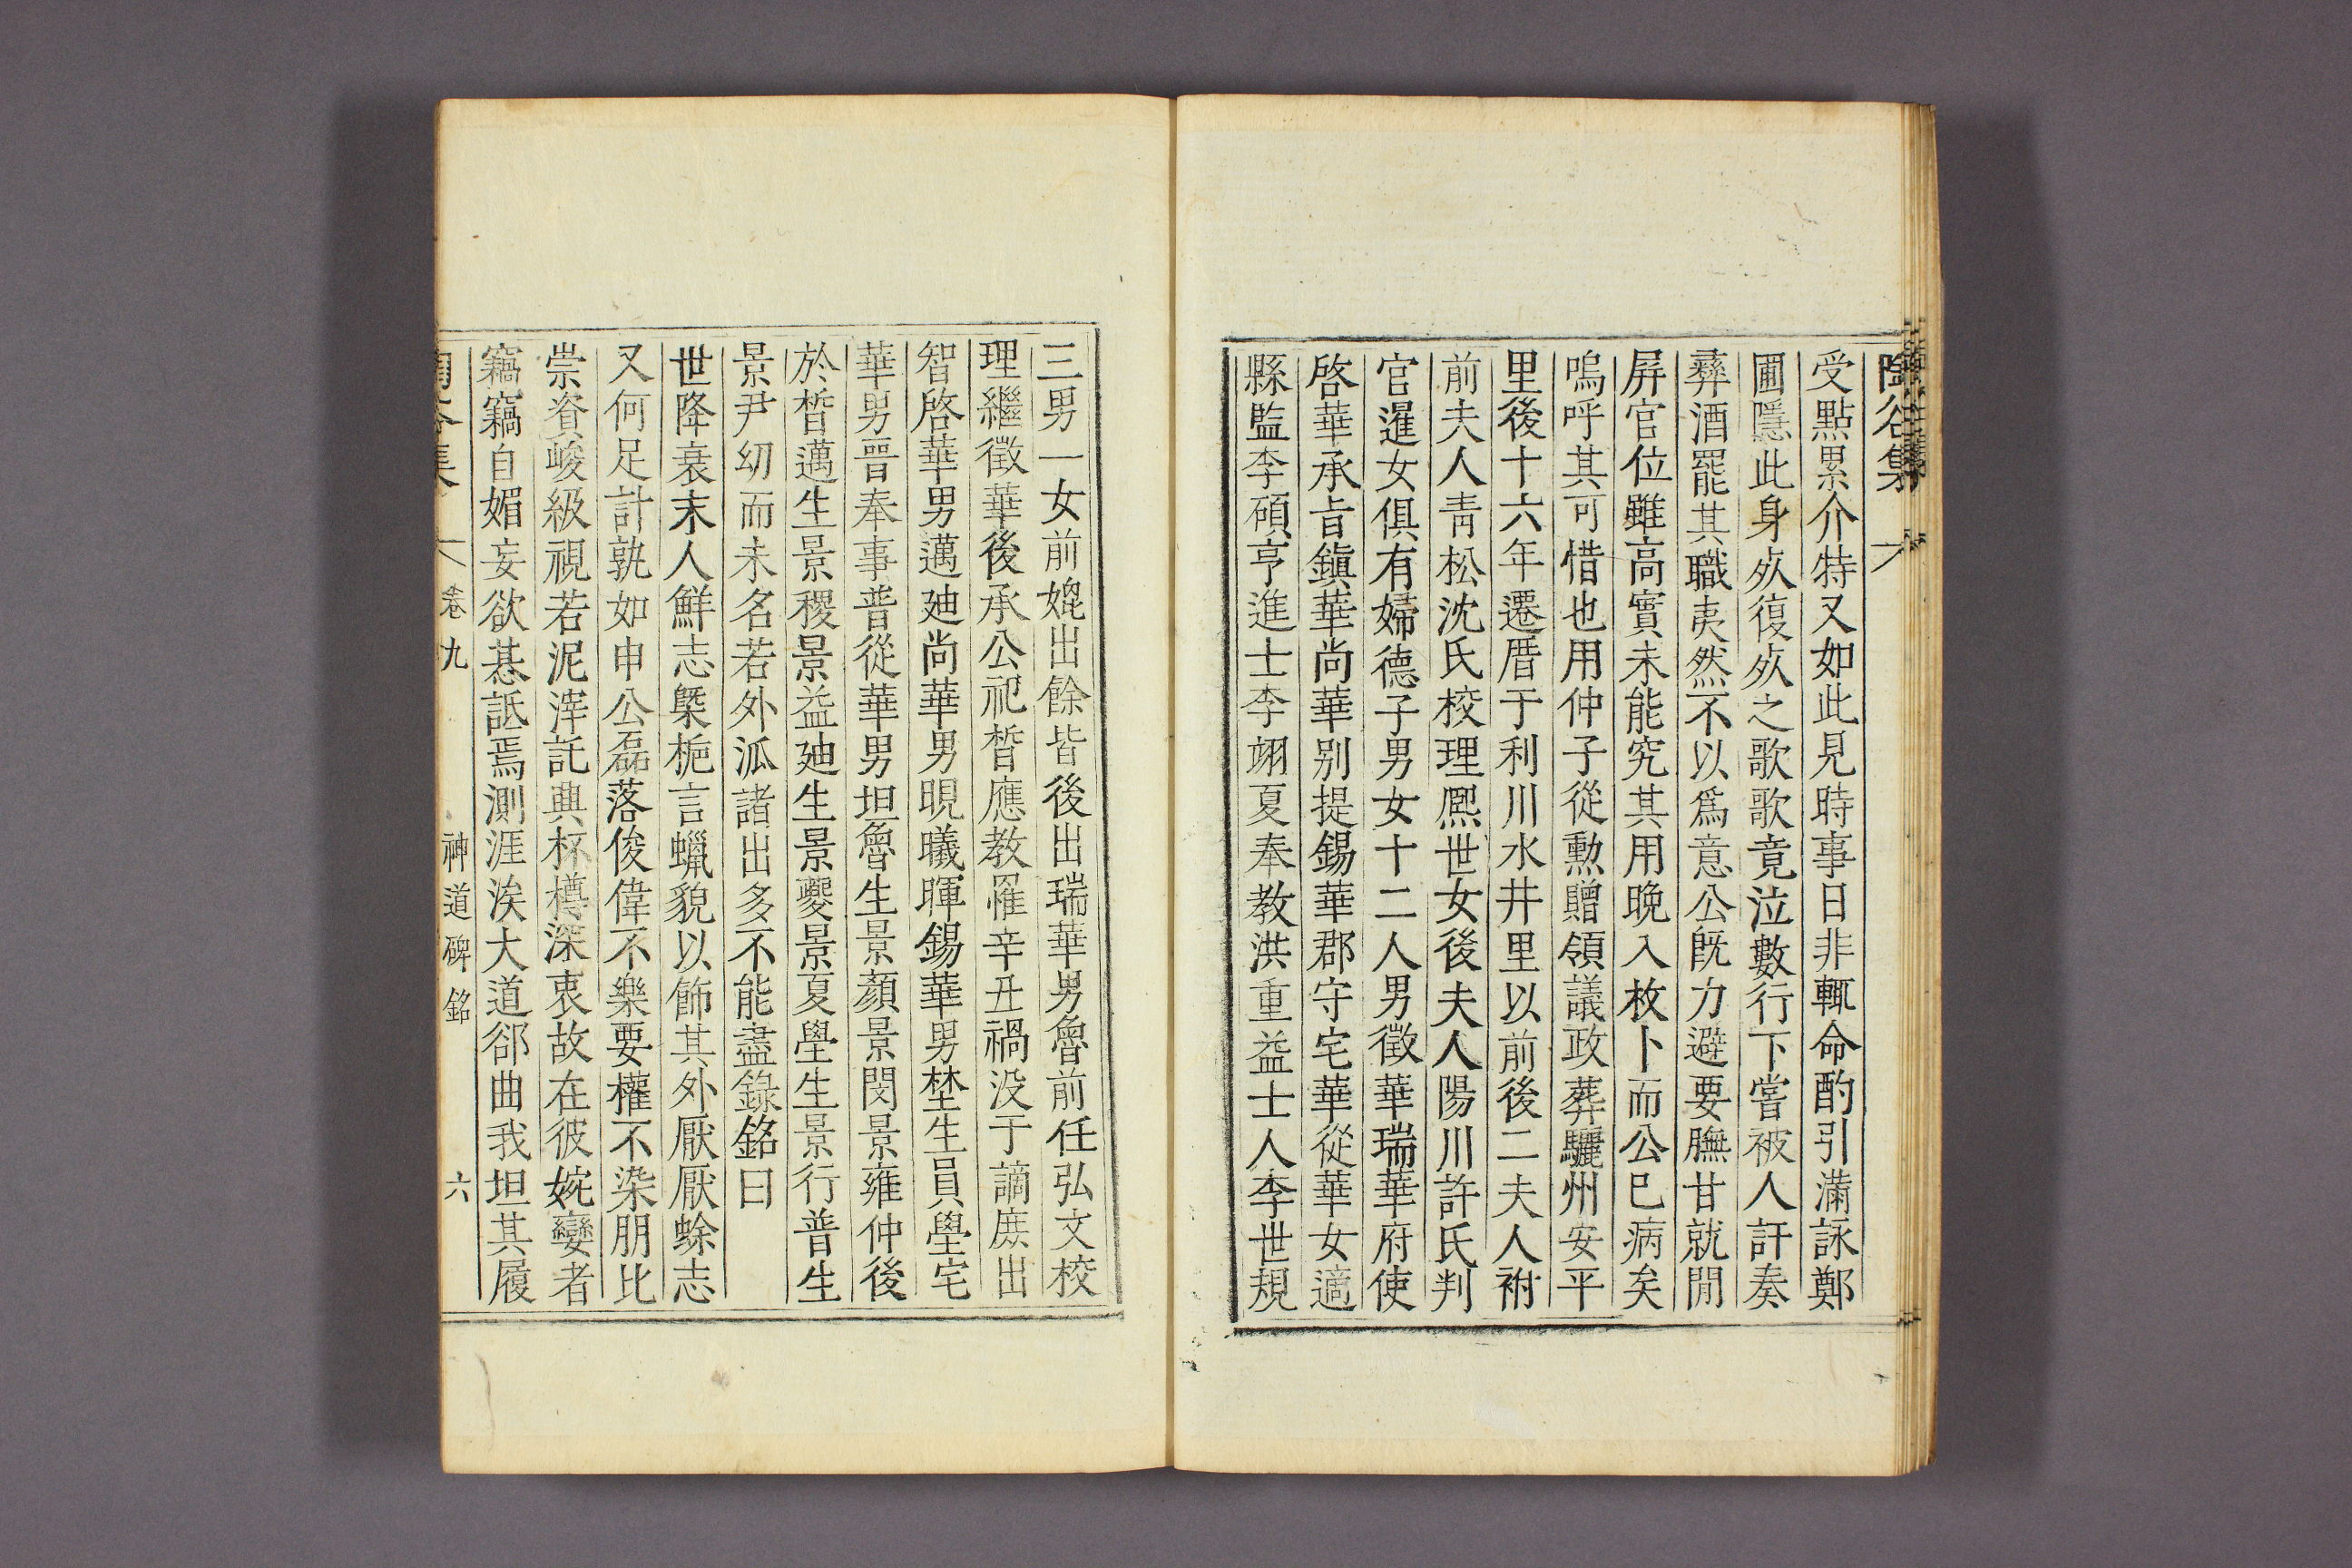 陶谷集
受點累介特又如此見時事日非輒命酌引滿詠鄭
圃隱此身死復死之歌歌竟泣數行下嘗被人訐奏
彛酒罷其職夷然不以爲意公旣力避要膴甘就閒
屛官位雖高實未能究其用晩入枚卜而公已病矣
嗚呼其可惜也用仲子從勳贈領議政葬驪州安平
里後十六年遷厝于利川水井里以前後二夫人祔
前夫人靑松沈氏校理熈世女後夫人陽川許氏判
官暹女俱有婦德子男女十二人男徵華瑞華府使
啓華承旨鎭華尙華別提錫華郡守宅華從華女適
縣監李碩亨進士李翊夏奉教洪重益士人李世䂓
三男一女前媲出餘皆後出瑞華男魯前任弘文校
理繼徵華後承公祀晳應教罹辛丑禍没于謫庶出
智啓華男邁廸尙華男晛曦暉錫華男埜生員學宅
華男晋奉事普從華男坦魯生景顏景閔景雍仲後
於晳邁生景稷景益廸生景夔景夏學生景行普生
景尹幼而未名若外派諸出多不能盡錄銘曰
世降衰末人鮮志槩梔言蠟貌以飾其外厭厭蜍志
又何足計孰如申公磊落俊偉不樂要權不染朋比
崇資峻級視若泥滓託興杯樽深衷故在彼婉孌者
竊竊自媚妄欲惎詆焉測涯涘大道郤曲我坦其履
陶谷集 卷九 神道碑銘 六